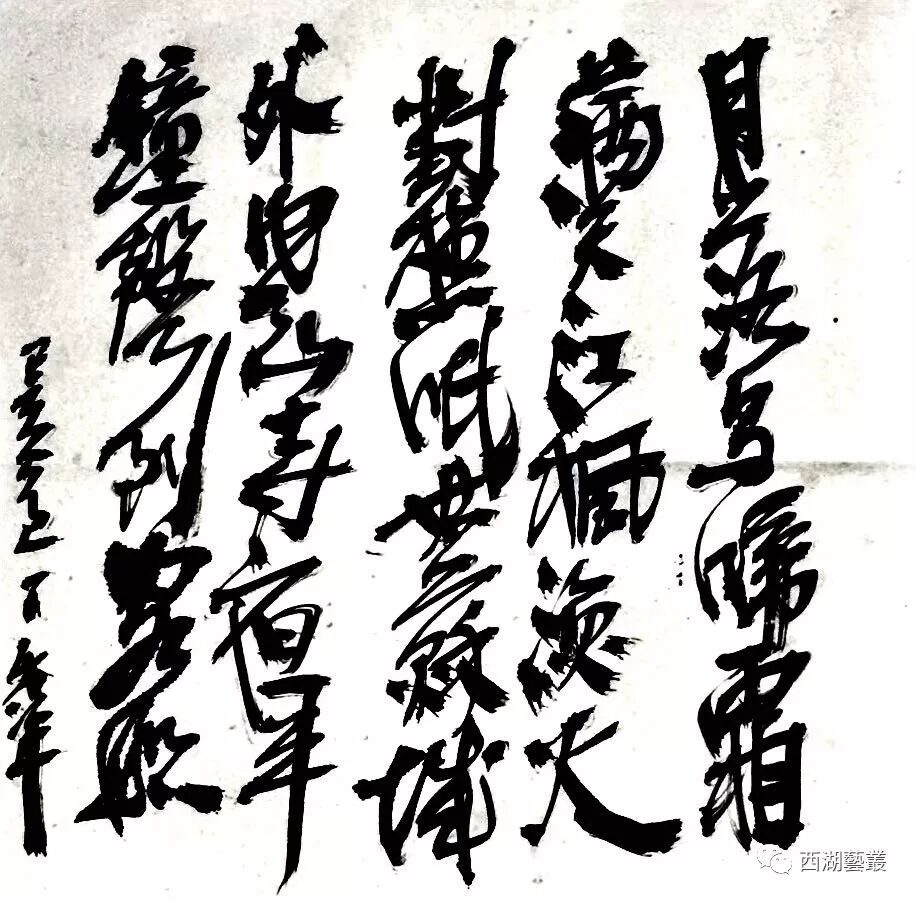 月落烏啼霜
滿天江楓漁火
對愁眠姑蘇城
外寒山寺夜半
鐘聲到客船
西湖藝叢